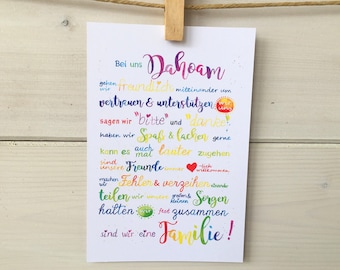 Bei uns Dahoam
gehen wir freundlich miteinander um
vertrauen & unterstützen
sagen wir "bitte" und "danke"
haben wir Spaß & lachen gerne
kann es auch mal lauter zugehen
sind unsere Freunde immer willkommen
machen wir Fehler & verzeihen
teilen wir unsere großen & kleinen Sorgen
halten fest zusammen
sind wir eine Familie!